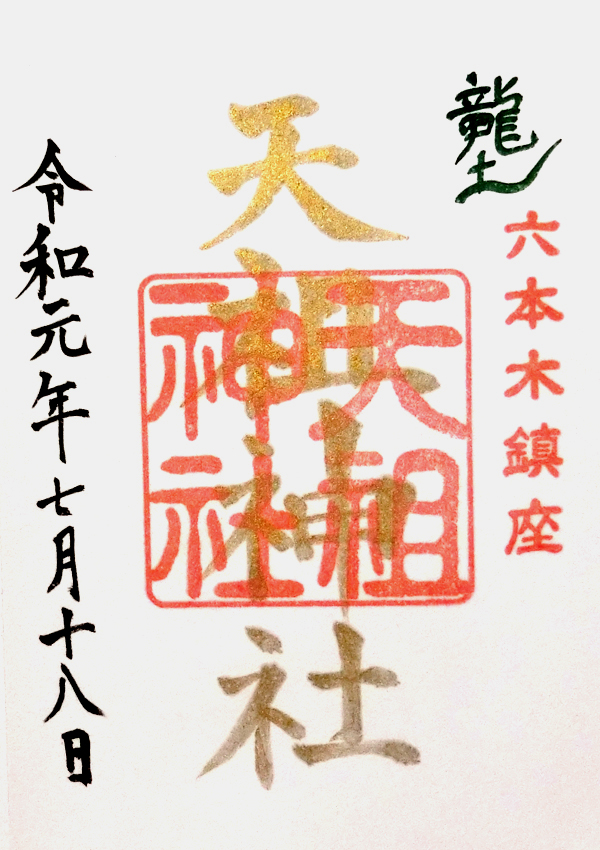 龍土
六本木鎮座
天祖神社
天祖神社
令和元年七月十八日